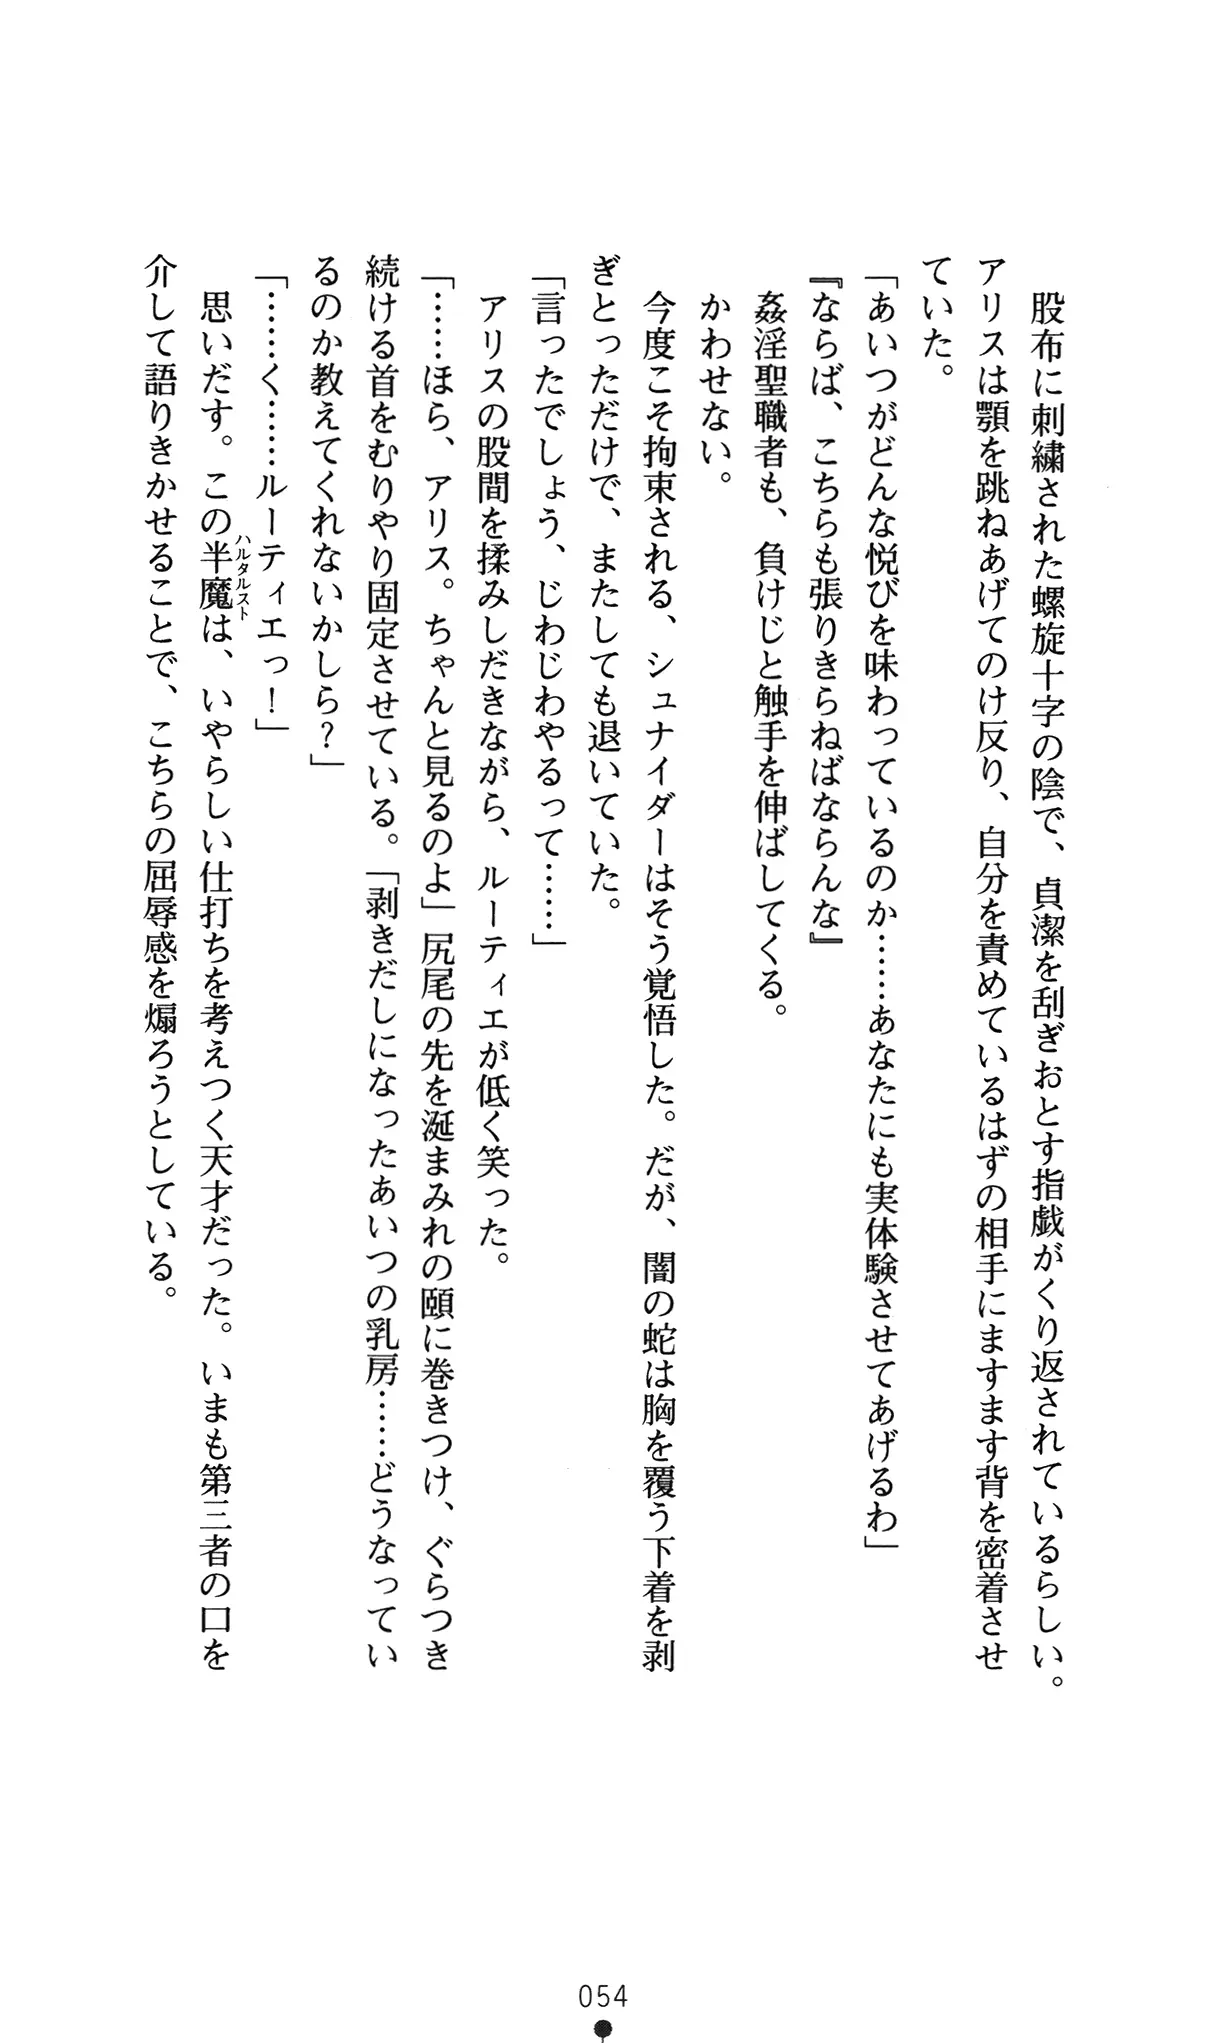 股布に刺繍された螺旋十字の陰で、貞潔を刮ぎおとす指戯がくり返されているらしい。
アリスは顎を跳ねあげてのけ反り、自分を責めているはずの相手にますます背を密着させ
ていた。
「あいつがどんな悦びを味わっているのか……あなたにも実体験させてあげるわ」
『ならば、こちらも張りきらねばならんな』
姦淫聖職者も、負けじと触手を伸ばしてくる。
かわせない。
今度こそ拘束される、シュナイダーはそう覚悟した。だが、闇の蛇は胸を覆う下着を剥
ぎとっただけで、またしても退いていた。
「言ったでしょう、じわじわやるって……」
アリスの股間を揉みしだきながら、ルーティエが低く笑った。
「……ほら、アリス。ちゃんと見るのよ」尻尾の先を涎まみれの頤に巻きつけ、ぐらつき
続ける首をむりやり固定させている。「剥きだしになったあいつの乳房……どうなってい
るのか教えてくれないかしら？」
「……く……ルーティエっ！」
ハルタルスト
思いだす。この半魔は、いやらしい仕打ちを考えつく天才だった。いまも第三者の口を
介して語りきかせることで、こちらの屈辱感を煽ろうとしている。
054